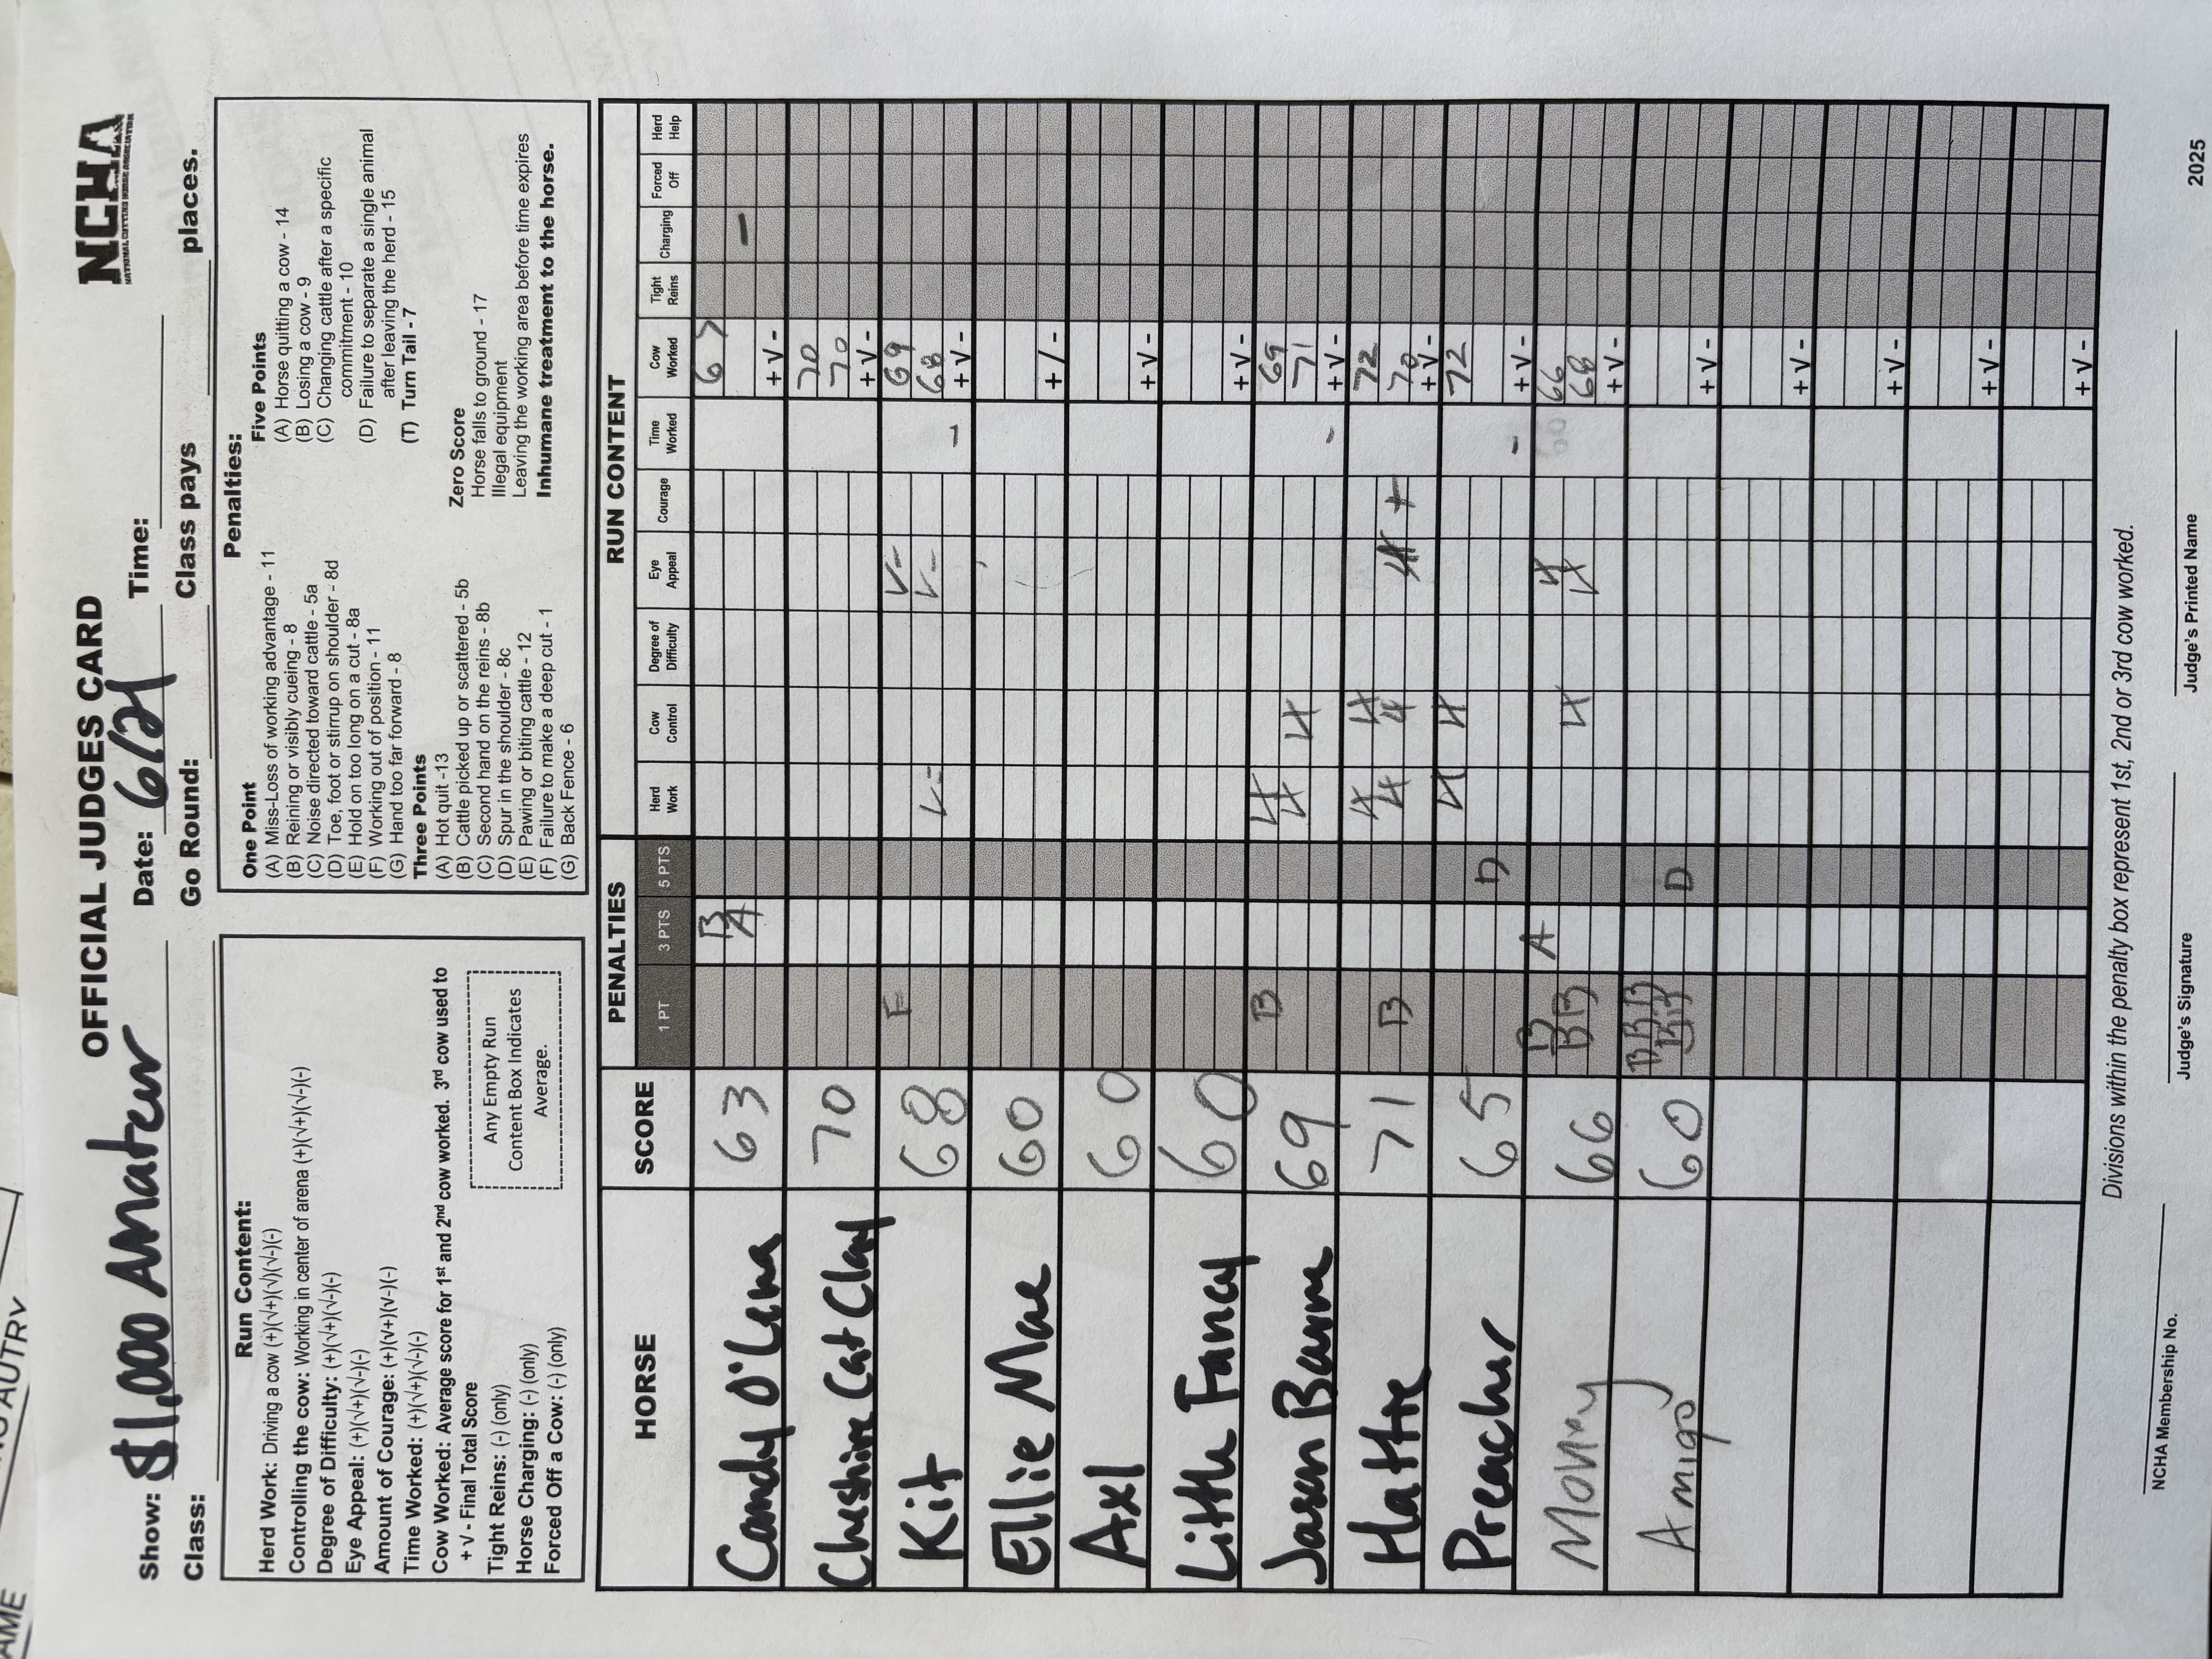 OFFICIAL JUDGES CARD
NCHA
NATIONAL CUTTING HORSE ASSOCIATION
Show: $1,000 Amateur Date: 6/21 Time:
Class: Go Round: Class pays places.
Run Content:
Herd Work: Driving a cow (+)(√+)(√)(√-)(-)
Controlling the cow: Working in center of arena (+)(√+)(√-)(-)
Degree of Difficulty: (+)(√+)(√-)(-)
Eye Appeal: (+)(√+)(√-)(-)
Amount of Courage: (+)(√+)(√-)(-)
Time Worked: (+)(√+)(√-)(-)
Cow Worked: Average score for 1st and 2nd cow worked. 3rd cow used to
+ √ - Final Total Score
Tight Reins: (-) (only)
Horse Charging: (-) (only)
Forced Off a Cow: (-) (only)
Any Empty Run
Content Box Indicates
Average.
Penalties:
One Point
(A) Miss-Loss of working advantage - 11
(B) Reining or visibly cueing - 8
(C) Noise directed toward cattle - 5a
(D) Toe, foot or stirrup on shoulder - 8d
(E) Hold on too long on a cut - 8a
(F) Working out of position - 11
(G) Hand too far forward - 8
Three Points
(A) Hot quit -13
(B) Cattle picked up or scattered - 5b
(C) Second hand on the reins - 8b
(D) Spur in the shoulder - 8c
(E) Pawing or biting cattle - 12
(F) Failure to make a deep cut - 1
(G) Back Fence - 6
Five Points
(A) Horse quitting a cow - 14
(B) Losing a cow - 9
(C) Changing cattle after a specific
commitment - 10
(D) Failure to separate a single animal
after leaving the herd - 15
(T) Turn Tail - 7
Zero Score
Horse falls to ground - 17
Illegal equipment
Leaving the working area before time expires
Inhumane treatment to the horse.
HORSE SCORE PENALTIES RUN CONTENT
1 PT 3 PTS 5 PTS Herd Work Cow Control Degree of Difficulty Eye Appeal Courage Time Worked Cow Worked Tight Reins Charging Forced Off Herd Help
Candy O'Lena 63 B A 67 -
+ √ -
Cheshire Cat Clay 70 70
70
+ √ -
Kit 68 F √- 69
√= √- 68
- + √ -
Ellie Mae 60
+ √ -
Axl 60
+ √ -
Little Fancy 60
+ √ -
Jason Barne 69 B 69
71
- + √ -
Hattie 71 72
B + 70
+ √ -
Preacher 65 72
D
- + √ -
Money 66 B A 66
B B 68
+ √ -
Amigo 60 B B B
D
+ √ -
+ √ -
+ √ -
+ √ -
+ √ -
Divisions within the penalty box represent 1st, 2nd or 3rd cow worked.
NCHA Membership No. Judge's Signature Judge's Printed Name 2025
AUTRY
AME